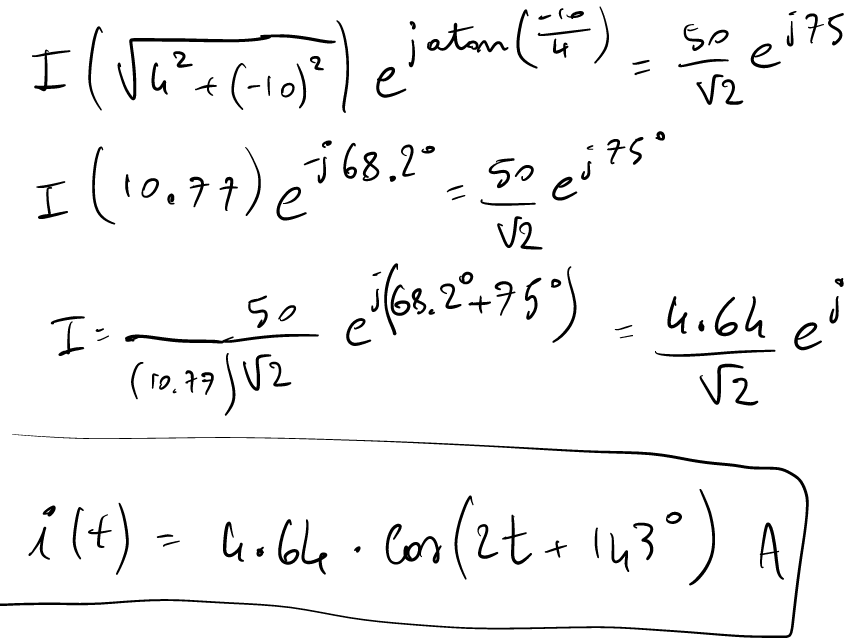 I (√(4² + (-10)²)) e^(j atan(-10/4)) = 50/√2 e^(j75
I (10.77) e^(-j68.2°) = 50/√2 e^(j75°)
I = 50/((10.77)√2) e^(j(68.2°+75°)) = 4.64/√2 e^j
i(t) = 4.64 · cos(2t + 143°) A